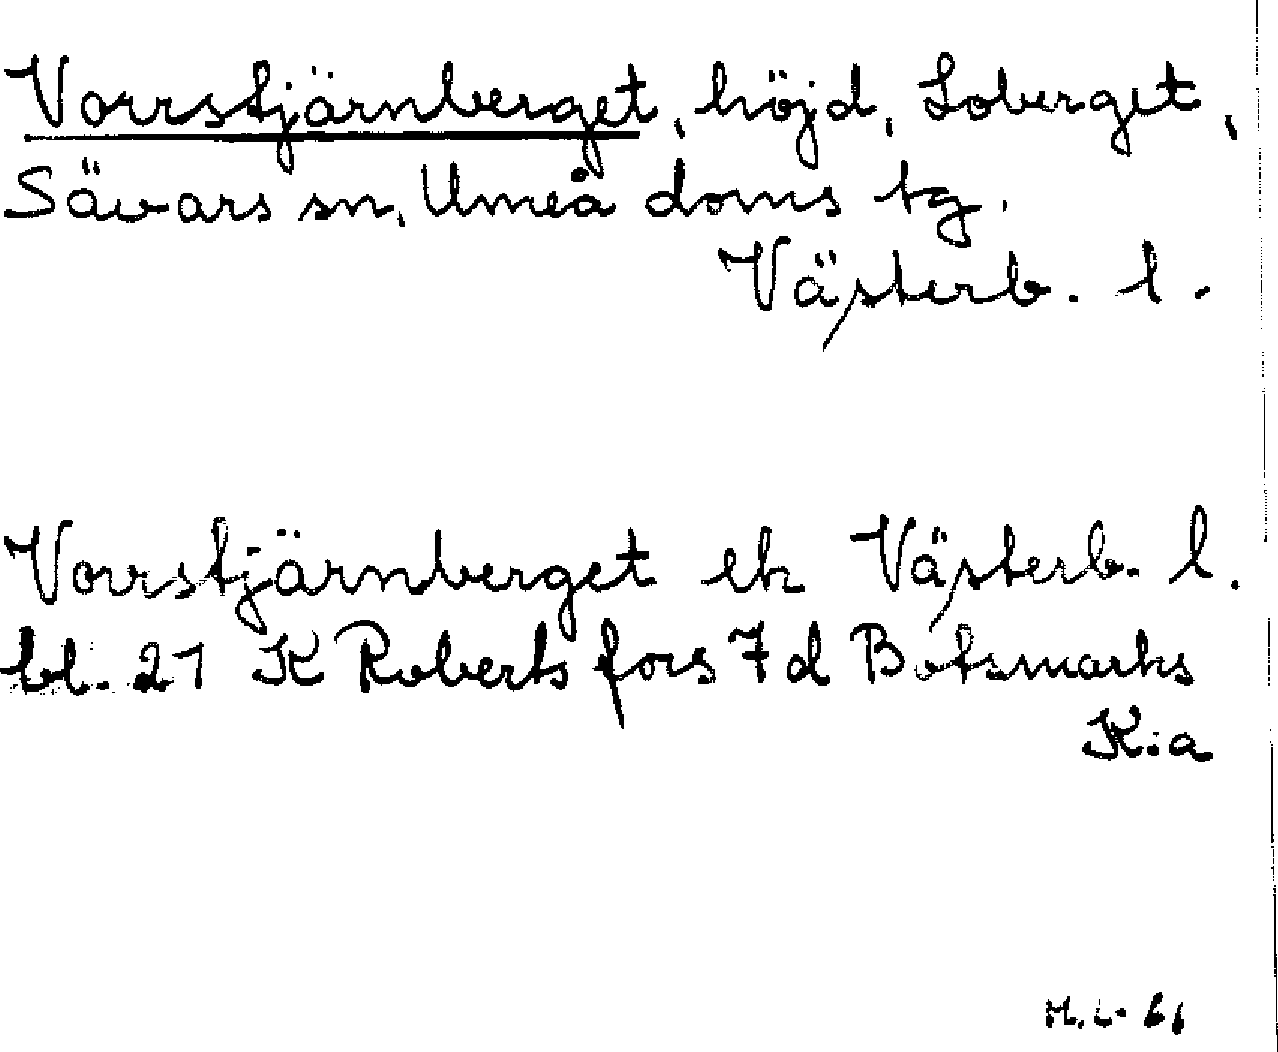 Vorrstjärnberget, höjd, Loberget,
Sävars sn, Umeå doms tg.
Västerb. l.
Vorrstjärnberget ek Västerb. l.
bl. 21 K Robertsfors 7d Botsmarks
K:a
H.L. 61